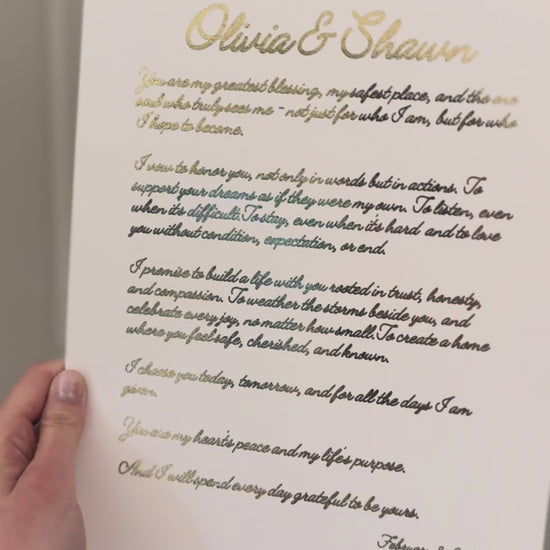 Olivia & Shawn
You are my greatest blessing, my safest place, and the one
soul who truly sees me - not just for who I am, but for who
I hope to become.
I vow to honor you, not only in words but in actions. To
support your dreams as if they were my own. To listen, even
when it's difficult. To stay, even when it's hard and to love
you without condition, expectation, or end.
I promise to build a life with you rooted in trust, honesty,
and compassion. To weather the storms beside you, and
celebrate every joy, no matter how small. To create a home
where you feel safe, cherished, and known.
I choose you today, tomorrow, and for all the days I am
given.
You are my heart's peace and my life's purpose.
And I will spend every day grateful to be yours.